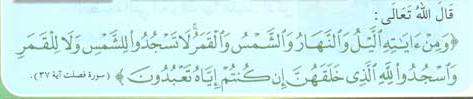 قَالَ اللهُ تَعَالَى :
﴿ وَمِنْ ءَايَٰتِهِ ٱلَّيْلُ وَٱلنَّهَارُ وَٱلشَّمْسُ وَٱلْقَمَرُ ۚ لَا تَسْجُدُوا۟ لِلشَّمْسِ وَلَا لِلْقَمَرِ
وَٱسْجُدُوا۟ لِلَّهِ ٱلَّذِى خَلَقَهُنَّ إِن كُنتُمْ إِيَّاهُ تَعْبُدُونَ ﴾ ( سورة فصلت آية ٣٧ ).